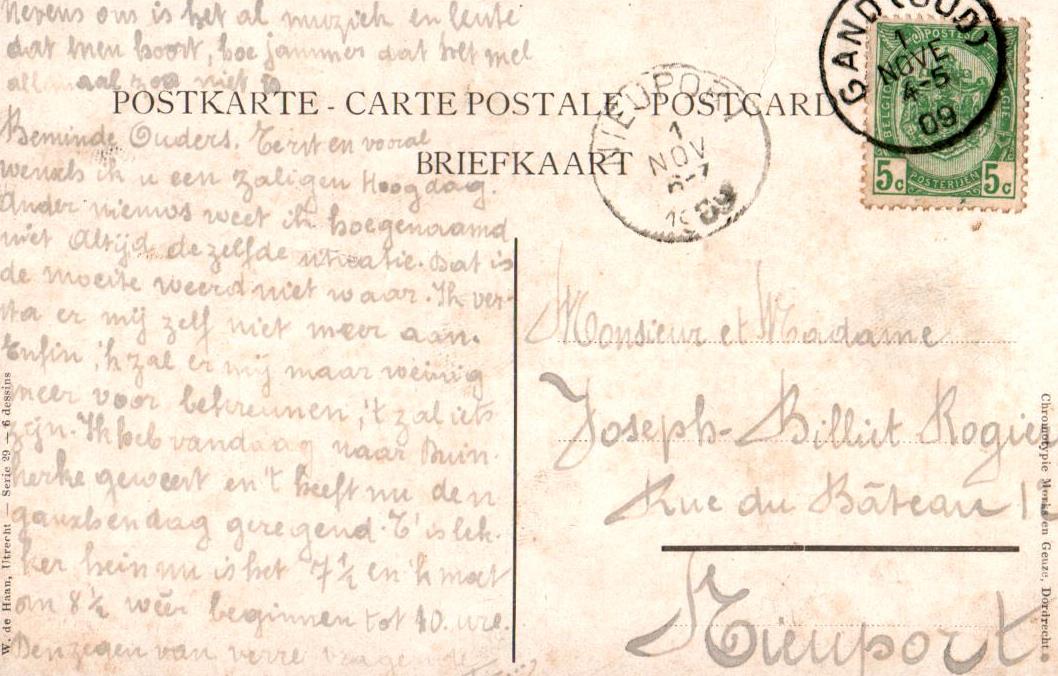 Nevens ons is het al muziek en leute
dat men hoort, hoe jammer dat het mel
allemaal zoo niet is
POSTKARTE - CARTE POSTALE - POSTCARD
BRIEFKAART
Beminde Ouders. Eerst en vooral
wensch ik u een Zaligen Hoogdag.
Ander nieuws weet ik hoegenaamd
niet Altijd de zelfde situatie. Dat is
de moeite weerd niet waar. Ik ver-
sta er mij zelf niet meer aan.
Enfin, 'k zal er mij maar weinig
meer voor bekreunen, 't zal iets
zijn. Ik heb vandaag naar Duin-
kerke geweest en 't heeft nu den
ganschen dag geregend. 'T is lek-
ker hein nu is het 7½ en 'k moet
om 8½ wéér beginnen tot 10. ure.
Den zegen van verre vragende
GAND (SUD)
1
NOVE
4-5
09
POSTES
BELGIQUE
5c POSTERIJEN 5c
NIEUPORT
1
NOV
6-7
1909
Monsieur et Madame
Joseph - Billiet Rogier
Rue du Bâteau
Nieuport
W. de Haan, Utrecht — Serie 29 — 6 dessins
Chromotypie Morks en Geuze, Dordrecht